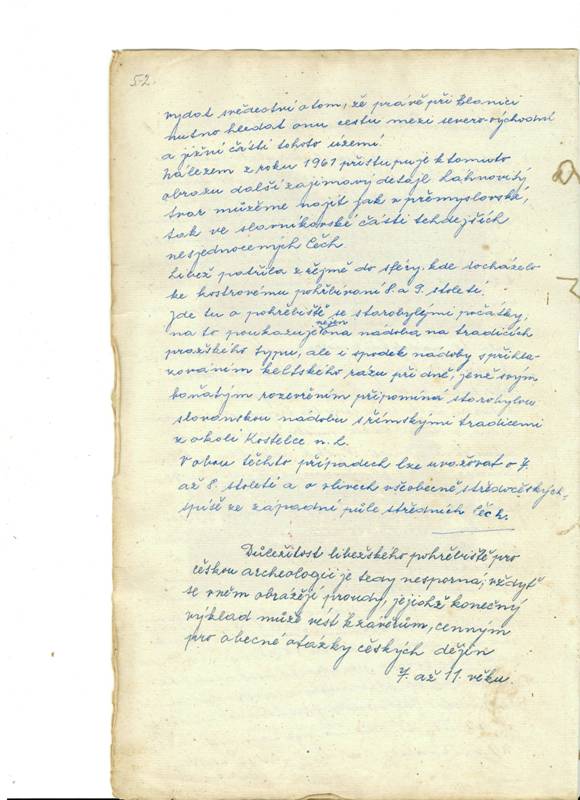 52.
vydat svědectví o tom, že právě při Blanici
nutno hledat onu cestu mezi severo-východní
a jižní částí tohoto území.
Nálezem z roku 1961 přistupuje k tomuto
obrazu další zajímavý detajl lahvovitý
tvar můžeme najít jak v přemyslovské,
tak ve slavníkovské části tehdejších
nesjednocených Čech.
Libež patřila zřejmě do sféry, kde docházelo
ke kostrovému pohřbívaní 8. a 9. století.
Jde tu o pohřebiště se starobylými počátky,
na to poukazuje nejen ona nádoba na tradicích
pražského typu, ale i spodek nádoby s
keltského rázu při dně, jenž svým
baňatým rozevřením připomíná starobylou
slovanskou nádobu s římskými tradicemi
z okolí Kostelce n. L.
V obou těchto případech lze uvažovat o 7.
až 8. století a o vlivech všeobecně středočeských,
spíše ze západní půle středních Čech.
Důležitost libežského pohřebiště pro
českou archeologii je tedy nesporná; vždyť
se v něm obrážejí proudy, jejichž konečný
výklad může vést k závěrům, cenným
pro obecné otázky českých dějin
7. až 11. věku.